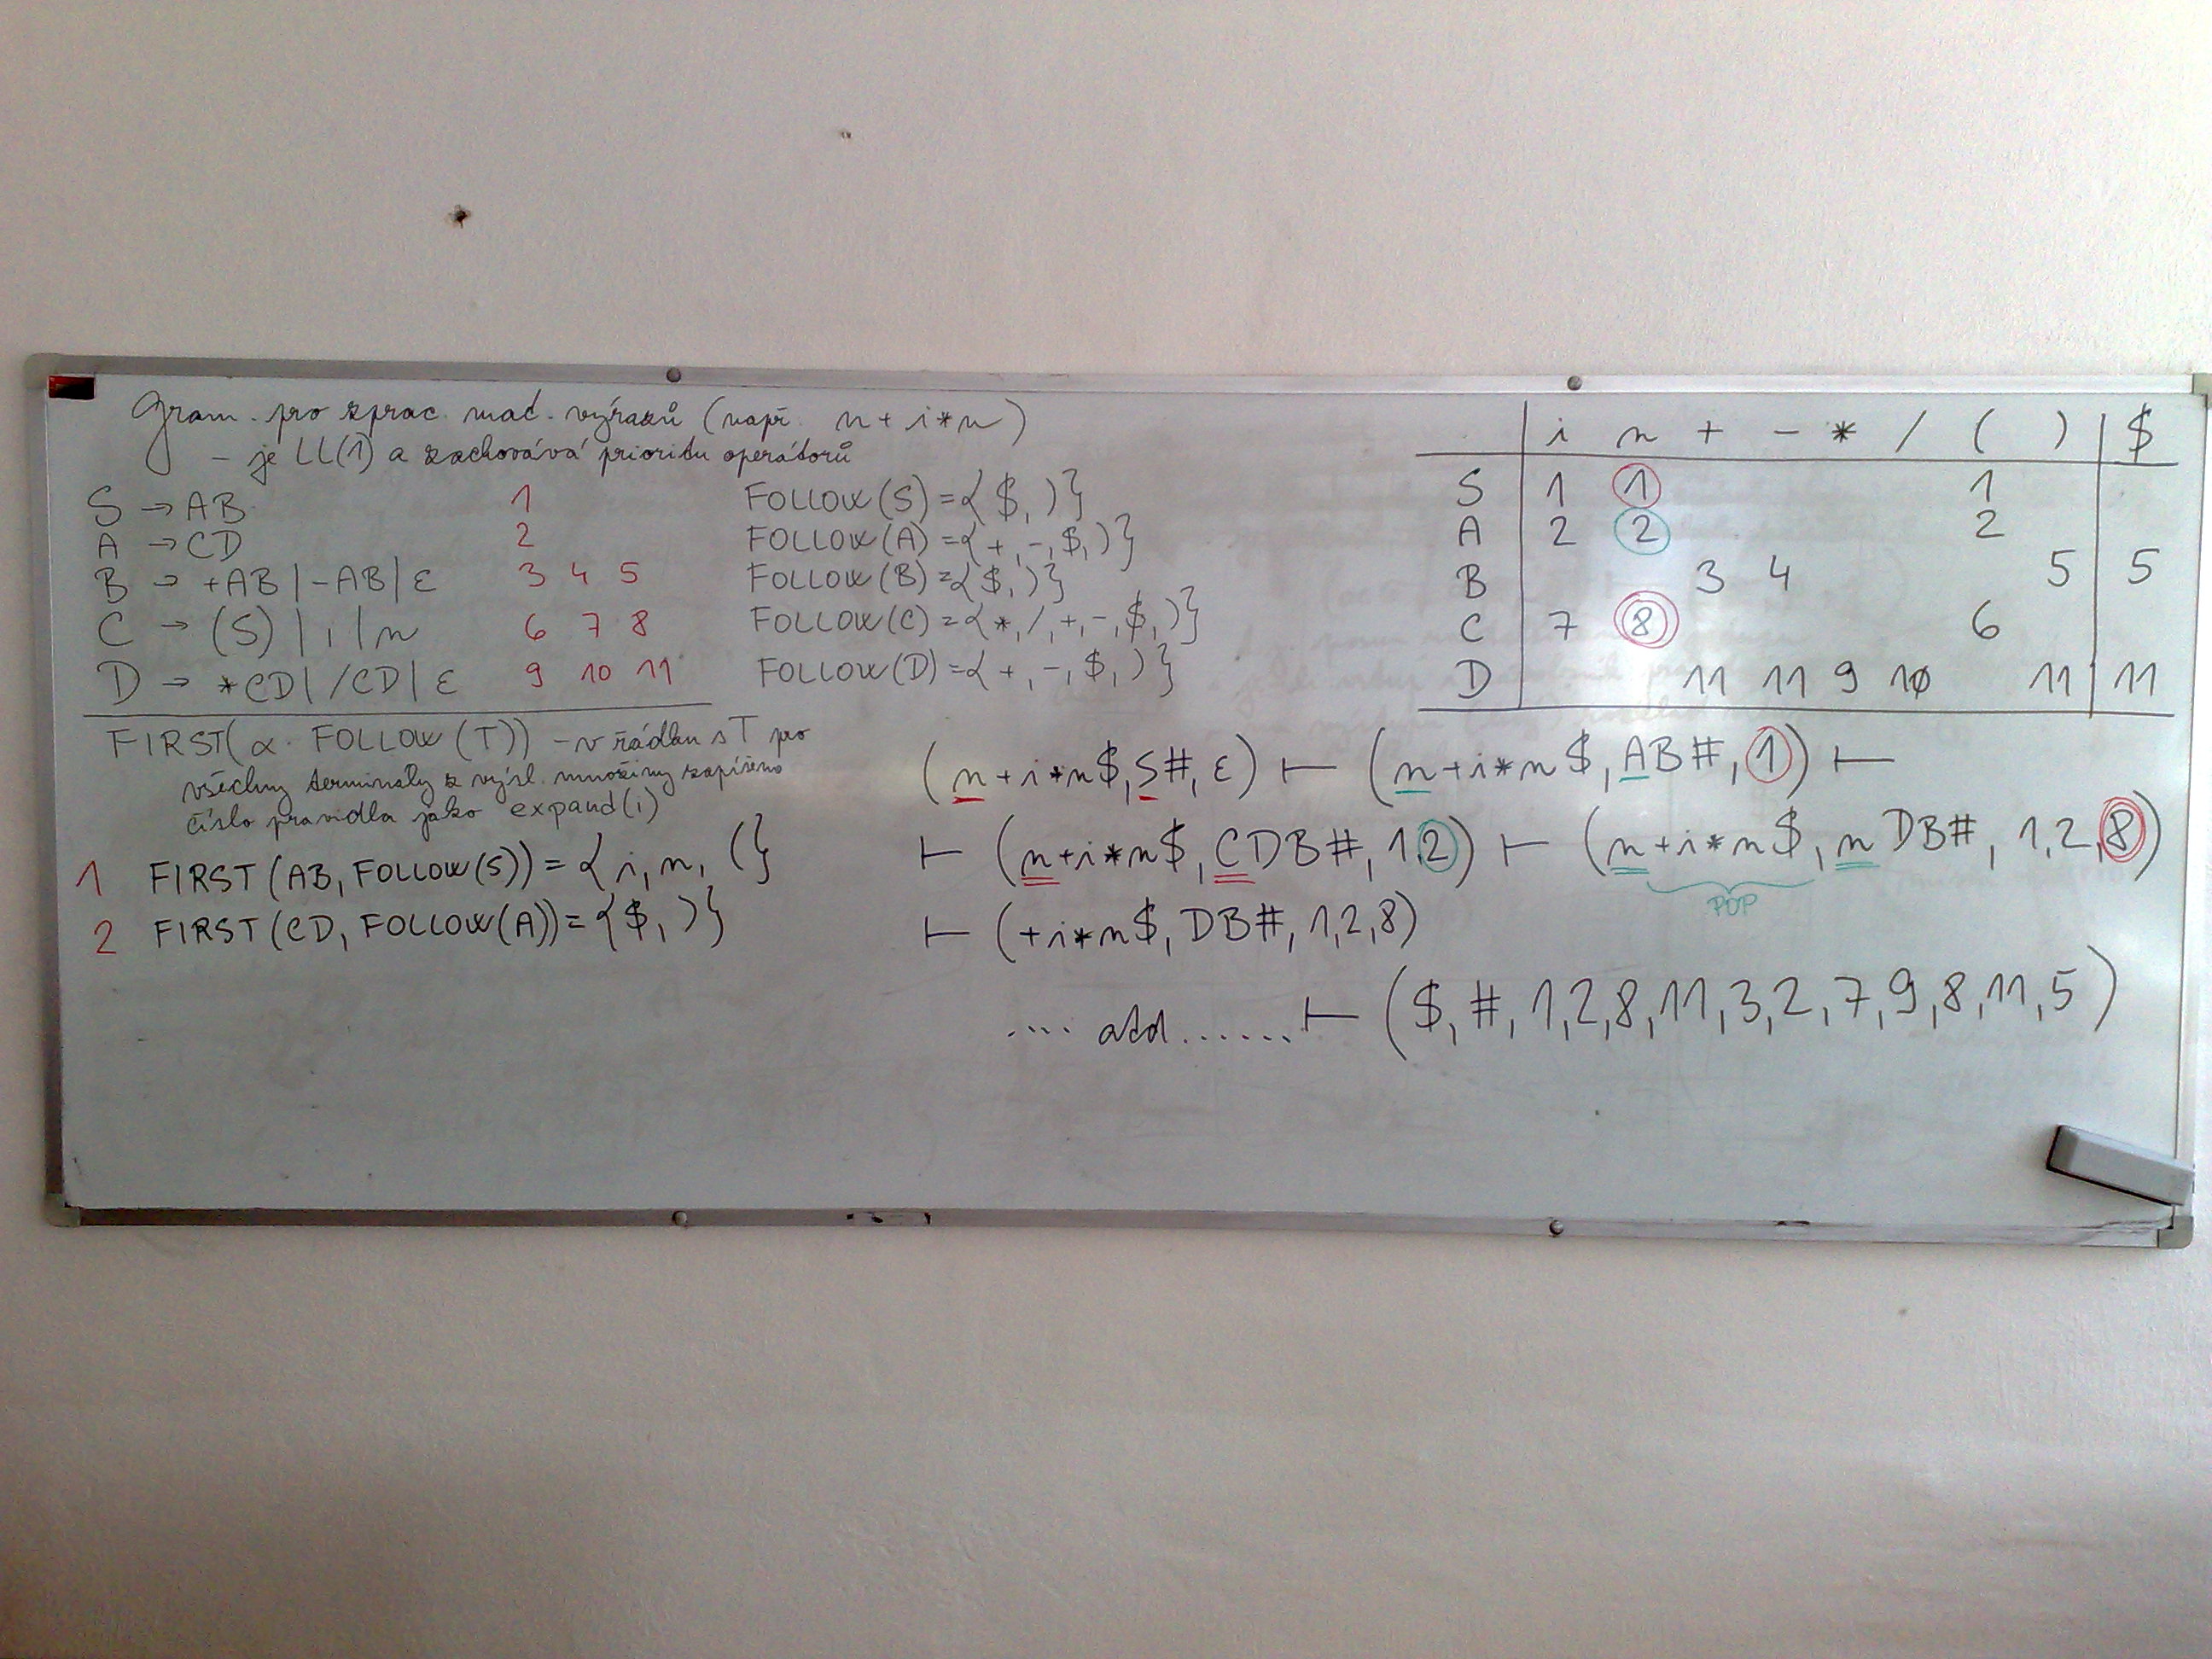 Gram. pro zprac. mat. výrazů (např. n+i*n)
- je LL(1) a zachovává prioritu operátorů
S → AB 1
A → CD 2
B → +AB | -AB | ε 3 4 5
C → (S) | i | n 6 7 8
D → *CD | /CD | ε 9 10 11
FOLLOW(S) = {$, )}
FOLLOW(A) = {+, -, $, )}
FOLLOW(B) = {$, )}
FOLLOW(C) = {*, /, +, -, $, )}
FOLLOW(D) = {+, -, $, )}
FIRST(α · FOLLOW(T)) - v řádku s T pro
všechny terminály z výsl. množiny zapíšeme
číslo pravidla jako expand(i)
1 FIRST(AB, FOLLOW(S)) = {i, n, (}
2 FIRST(CD, FOLLOW(A)) = {$, )}
i n + - * / ( ) $
S 1 1 1
A 2 2 2
B 3 4 5 5
C 7 8 6
D 11 11 9 10 11 11
(n+i*n$, S#, ε) ⊢ (n+i*n$, AB#, 1) ⊢
⊢ (n+i*n$, CDB#, 1,2) ⊢ (n+i*n$, nDB#, 1,2,8)
POP
⊢ (+i*n$, DB#, 1,2,8)
.... atd ...... ⊢ ($, #, 1,2,8,11,3,2,7,9,8,11,5)